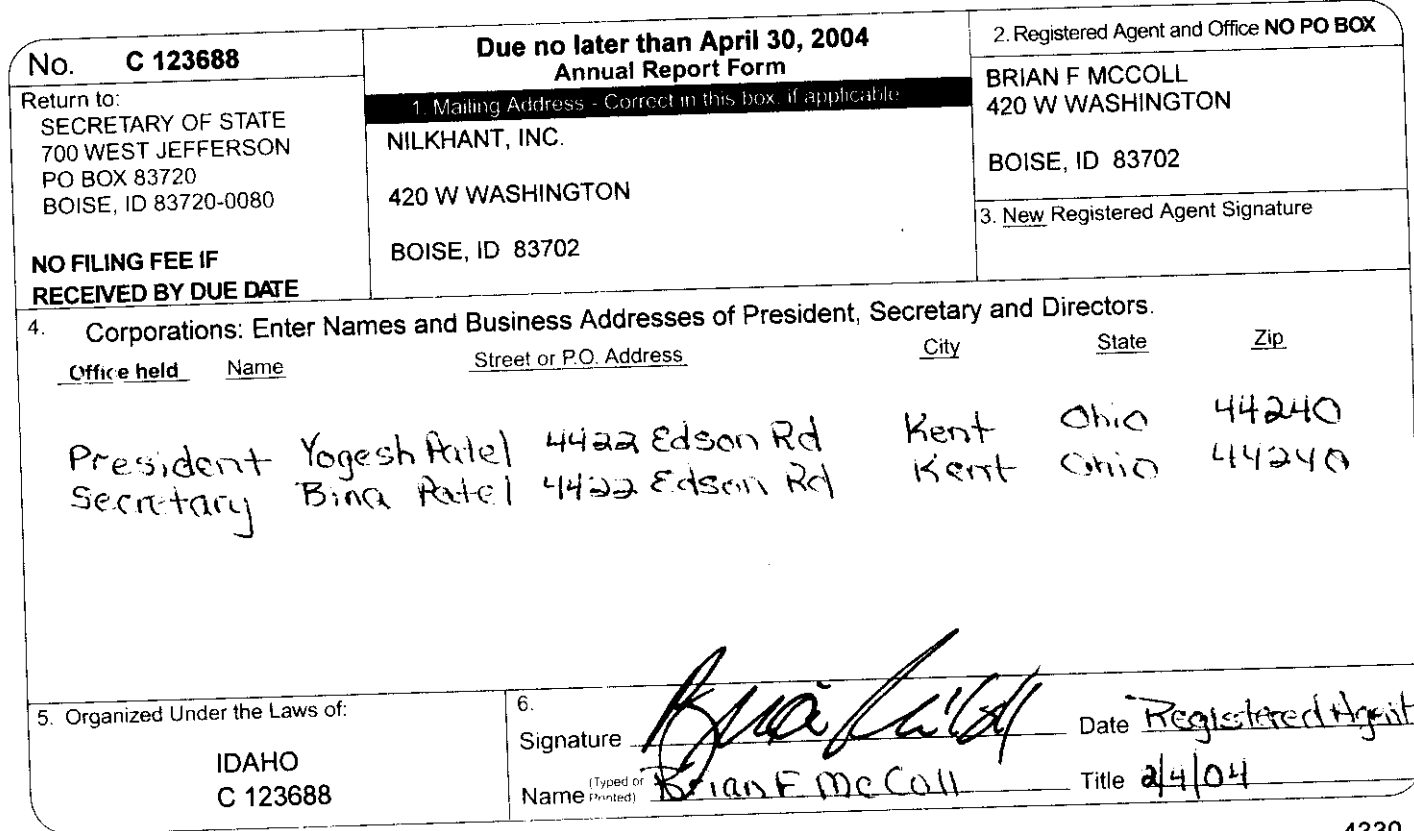 No. C 123688
Return to:
SECRETARY OF STATE
700 WEST JEFFERSON
PO BOX 83720
BOISE, ID 83720-0080
NO FILING FEE IF
RECEIVED BY DUE DATE
Due no later than April 30, 2004
Annual Report Form
1. Mailing Address - Correct in this box, if applicable
NILKHANT, INC.
420 W WASHINGTON
BOISE, ID 83702
2. Registered Agent and Office NO PO BOX
BRIAN F MCCOLL
420 W WASHINGTON
BOISE, ID 83702
3. New Registered Agent Signature
4. Corporations: Enter Names and Business Addresses of President, Secretary and Directors.
Office held Name Street or P.O. Address City State Zip
President Yogesh Patel 4422 Edson Rd Kent Ohio 44240
Secretary Bina Patel 4422 Edson Rd Kent Ohio 44240
5. Organized Under the Laws of:
IDAHO
C 123688
6.
Signature Date Registered Agent
Name (Typed or Printed) Brian F McColl Title 2/4/04